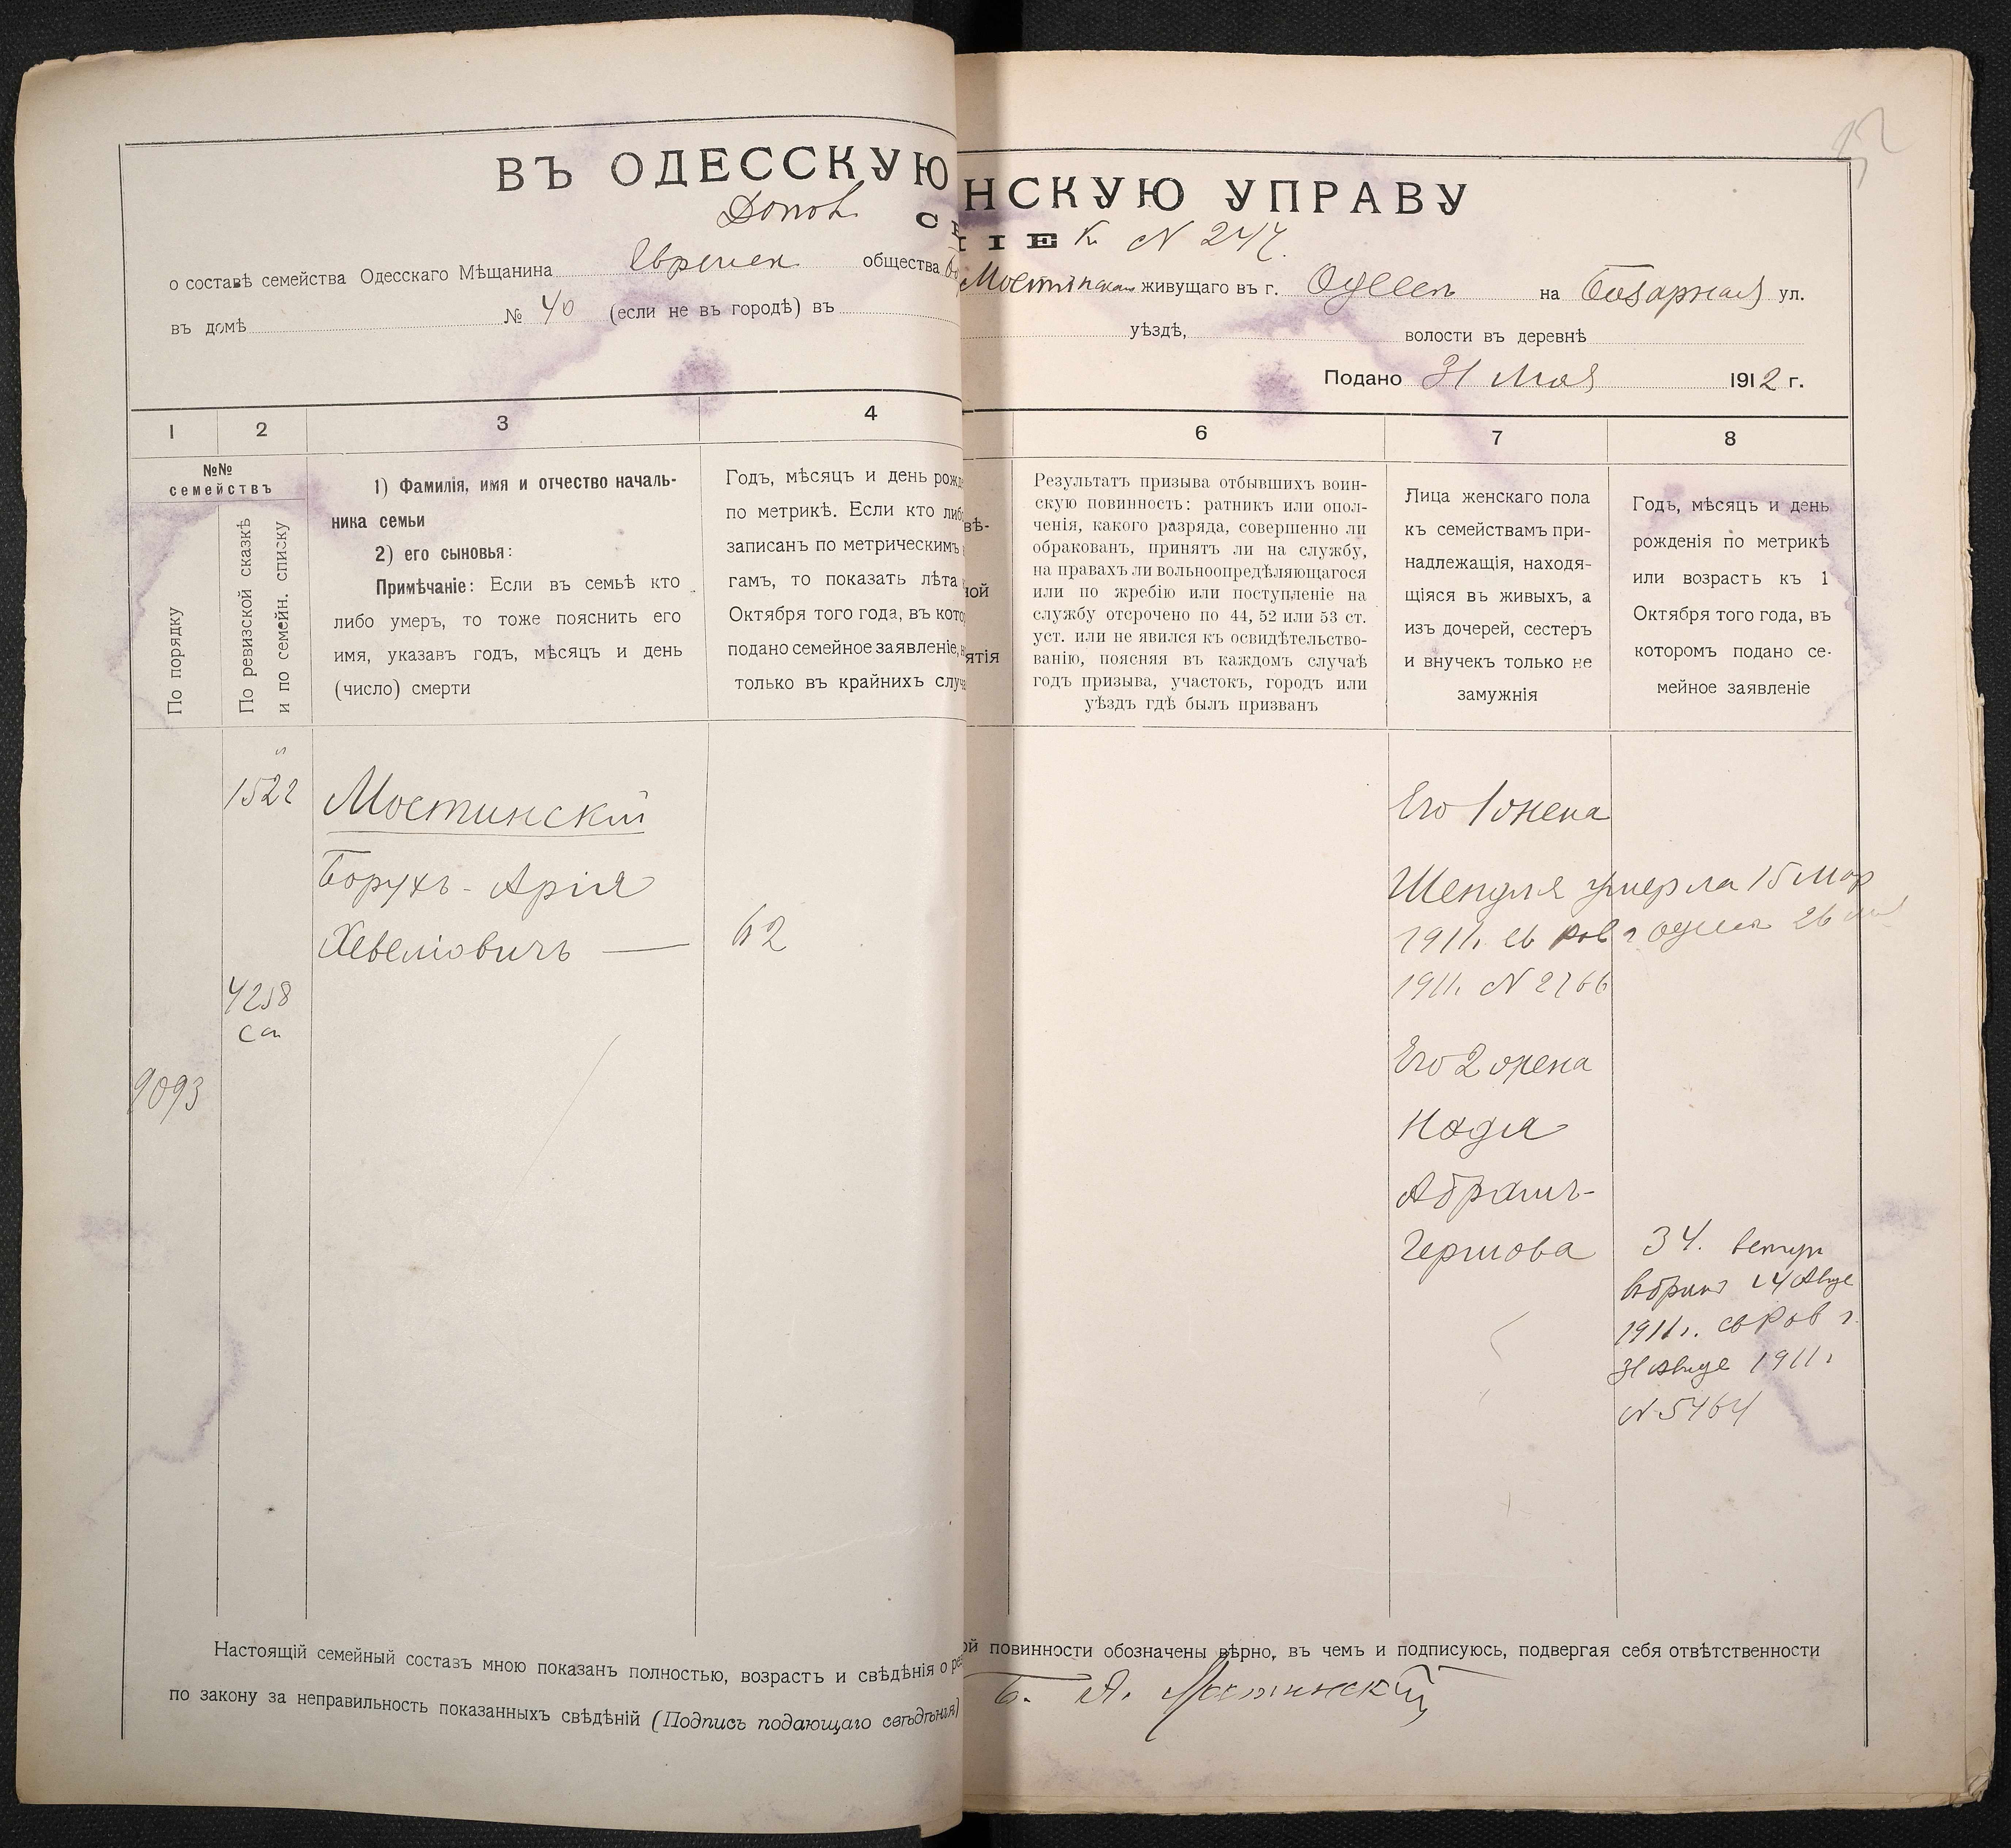 ВЪ ОДЕССКУЮ
НСКУЮ УПРАВУ
Дополн.
ІІЕ К № 247.
о составѣ семейства Одесскаго Мѣщанина Евреиск общества
Мостинскаго живущаго въ г. Одессѣ на Базарная ул.
въ домѣ № 40 (если не въ городѣ) въ
уѣздѣ, волости въ деревнѣ
Подано 31 Мая 1912 г.
1 2 3 4
6 7 8
№№
семействъ
По порядку
По ревизской сказкѣ
и по семейн. списку
1) Фамилія, имя и отчество началь-
ника семьи
2) его сыновья:
Примѣчаніе: Если въ семьѣ кто
либо умеръ, то тоже пояснить его
имя, указавъ годъ, мѣсяцъ и день
(число) смерти
Годъ, мѣсяцъ и день рожд
по метрикѣ. Если кто либ
записанъ по метрическимъ
гамъ, то показать лѣта
Октября того года, въ кото
подано семейное заявленіе,
только въ крайнихъ случа
вѣ-
ной
ятія
Результатъ призыва отбывшихъ воин-
скую повинность: ратникъ или опол-
ченія, какого разряда, совершенно ли
обракованъ, принятъ ли на службу,
на правахъ ли вольноопредѣляющагося
или по жребію или поступленіе на
службу отсрочено по 44, 52 или 53 ст.
уст. или не явился къ освидѣтельство-
ванію, поясняя въ каждомъ случаѣ
годъ призыва, участокъ, городъ или
уѣздъ гдѣ былъ призванъ
Лица женскаго пола
къ семействамъ при-
надлежащія, находя-
щіяся въ живыхъ, а
изъ дочерей, сестеръ
и внучекъ только не
замужнія
Годъ, мѣсяцъ и день
рожденія по метрикѣ
или возрастъ къ 1
Октября того года, въ
которомъ подано се-
мейное заявленіе
1522
Мостинскій
Борухъ-Арія
Хевеліовичъ — 62
4258
9093
Его 1 жена
Шендля умерла 15 Мар
1911. св Рав г Одессы 26
1911. № 2766
Его 2 жена
Надя
Абрамъ-
Гершова
34. вступ
въ бракъ 14 Авгус
1911г. св Рав г.
31 Авгус 1911г
№ 5464
Настоящій семейный составъ мною показанъ полностью, возрастъ и свѣдѣнія о
ой повинности обозначены вѣрно, въ чемъ и подписуюсь, подвергая себя отвѣтственности
по закону за неправильность показанныхъ свѣдѣній (Подпись подающаго свѣдѣнія)
Б. А. Мостинскій